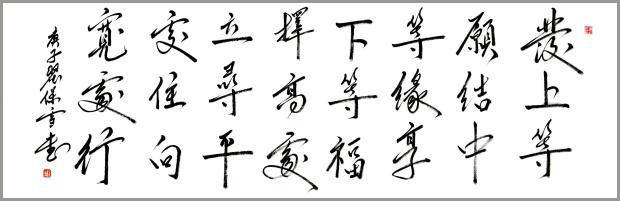 發上等
願結中
等緣享
下等福
擇高處
立尋平
處住向
寬處行
庚子